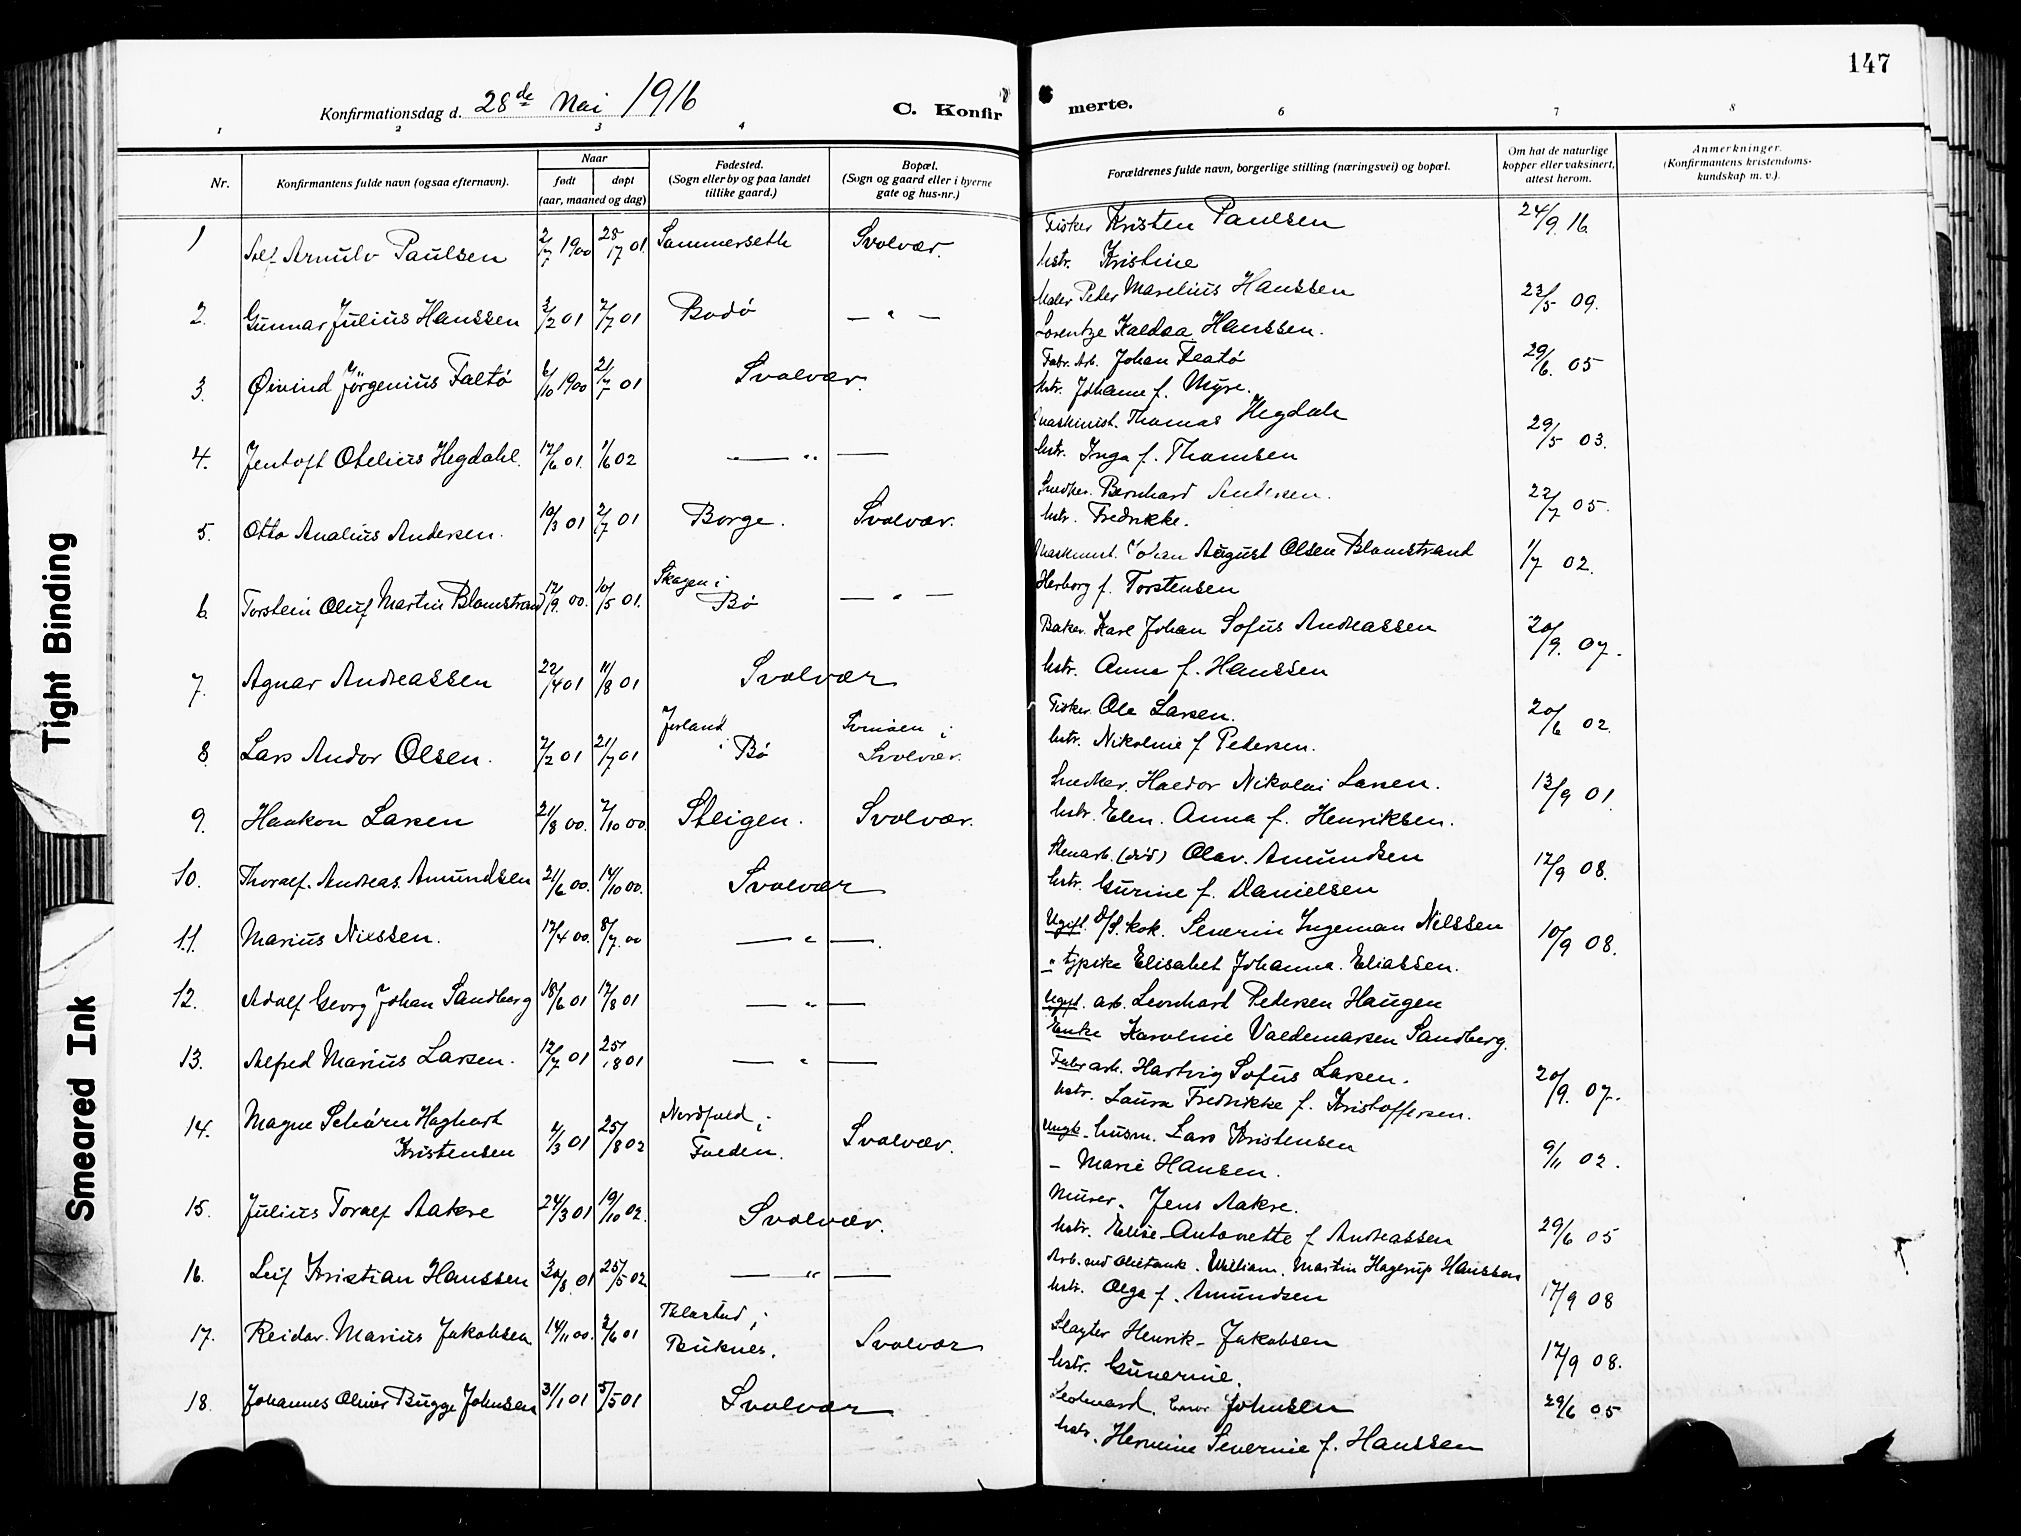 147
Konfirmationsdag d. 28de Mai 1916 C. Konfir merte.
1 2 3 4 6 7 8
Nr. Konfirmantens fulde navn (ogsaa efternavn). Naar født døpt (aar, maaned og dag) Fødested. (Sogn eller by og paa landet tillike gaard.) Bopæl. (Sogn og gaard eller i byerne gate og hus-nr.) Forældrenes fulde navn, borgerlige stilling (næringsvei) og bopæl. Om hat de naturlige kopper eller vaksinert, attest herom. Anmerkninger. (Konfirmantens kristendoms-kundskap m. v.).
1 Alf Arnulv Paulsen 2/7 1900 Sammerseth Svolvær. Fisker Kristen Paulsen 24/9 16
hstr. Kristine
2. Gunnar Julius Hanssen 3/2 01 7/7 01 Bodø — " — Maler Peder Marelius Hanssen 23/5 09.
Lorentze Kaldaa Hanssen.
3. Øivind Jørgenius Faltø 6/10 1900 21/7 01 Svolvær. Fabr. Arb. Johan Flatø 29/6. 05
hstr. Johanne f. Myre.
4. Jentoft Otelius Hegdahl. 17/6 01. 1/6 02 — " — Maskinist. Thomas Hegdahl 29/5 03.
hstr. Inga f. Thomsen
5. Otto Analius Andersen. 10/3 01 2/7 01 Borge. Svolvær. Snedker. Bernhard Andersen. 22/7 05.
hstr. Fredrikke.
6. Torstein Oluf Martin Blomstrand 12/9. 00. 10/5 01. Skagen i Bø — " — Maskinist. Johan August Olsen Blomstrand 1/7 02.
Herborg f. Torstensen
7. Agnar Andreassen 22/4 01 11/8 01 Svolvær Baker. Karl Johan Sofus Andreassen 20/9. 07.
hstr. Anna f. Hanssen
8. Lars Andor Olsen. 7/2 01 21/7 01 Jorland i Bø Svinøen i Svolvær. Fisker. Ole Larsen. 20/6 02.
hstr. Nikoline f Pedersen.
9. Haakon Larsen 21/8 00. 7/10 00. Steigen. Svolvær. Snedker. Haldor Nikolai Larsen. 13/9 01.
hstr. Elen. Anna f. Henriksen.
10. Thoralf. Andreas. Amundsen 21/6 00. 14/10 00. Svolvær Stenarb. (død) Olav. Amundsen 17/9 08.
hstr. Gurine f. Danielsen
11. Marius Nilssen. 17/4 00. 8/7. 00 — " —. Ugift. d/s. kok. Severin Ingeman Nilssen 10/9 08.
" pike Elisabet Johanna. Eliassen.
12. Adolf Georg Johan Sandberg 18/6 01 17/8 01 — " — Ugift. arb. Leonhard Pedersen Haugen
Enke Karoline Valdemarsen Sandberg.
13. Alfred Marius Larsen. 12/7 01 25/8 01 — " — Fabr arb. Hartvig Sofus Larsen. 20/9. 07.
hstr. Laura Fredrikke f. Kristoffersen.
14. Magne Schøren Haghart Kristensen 4/3 01 25/8 02 Nordfold i Folden. Svolvær. Ungk. husm. Lars Kristensen 9/11 02.
— Marie Hansen.
15. Julius Toralf Aakre 24/3 01 19/10 02. Svolvær. Murer. Jens Aakre.
hstr. Elise-Antonette f Andreassen 29/6 05
16. Leif Kristian Hanssen 30/8. 01 25/5 02. — " — Arb. ved Olietank. William. Martin Hagerup Hanssen
hstr. Olga f. Amundsen 17/9 08
17. Reidar. Marius Jakobsen 14/11 00. 2/6 01 Buknes. Svolvær Slagter Henrik- Jakobsen
hstr. Gunerine. 17/9 08.
18. Johannes Oliver Bugge Johnsen 31/1 01 5/5 01 Svolvær Johnsen 29/6 05
hstr. Hermine Severine f. Hanssen
Tight Binding
Smeared Ink